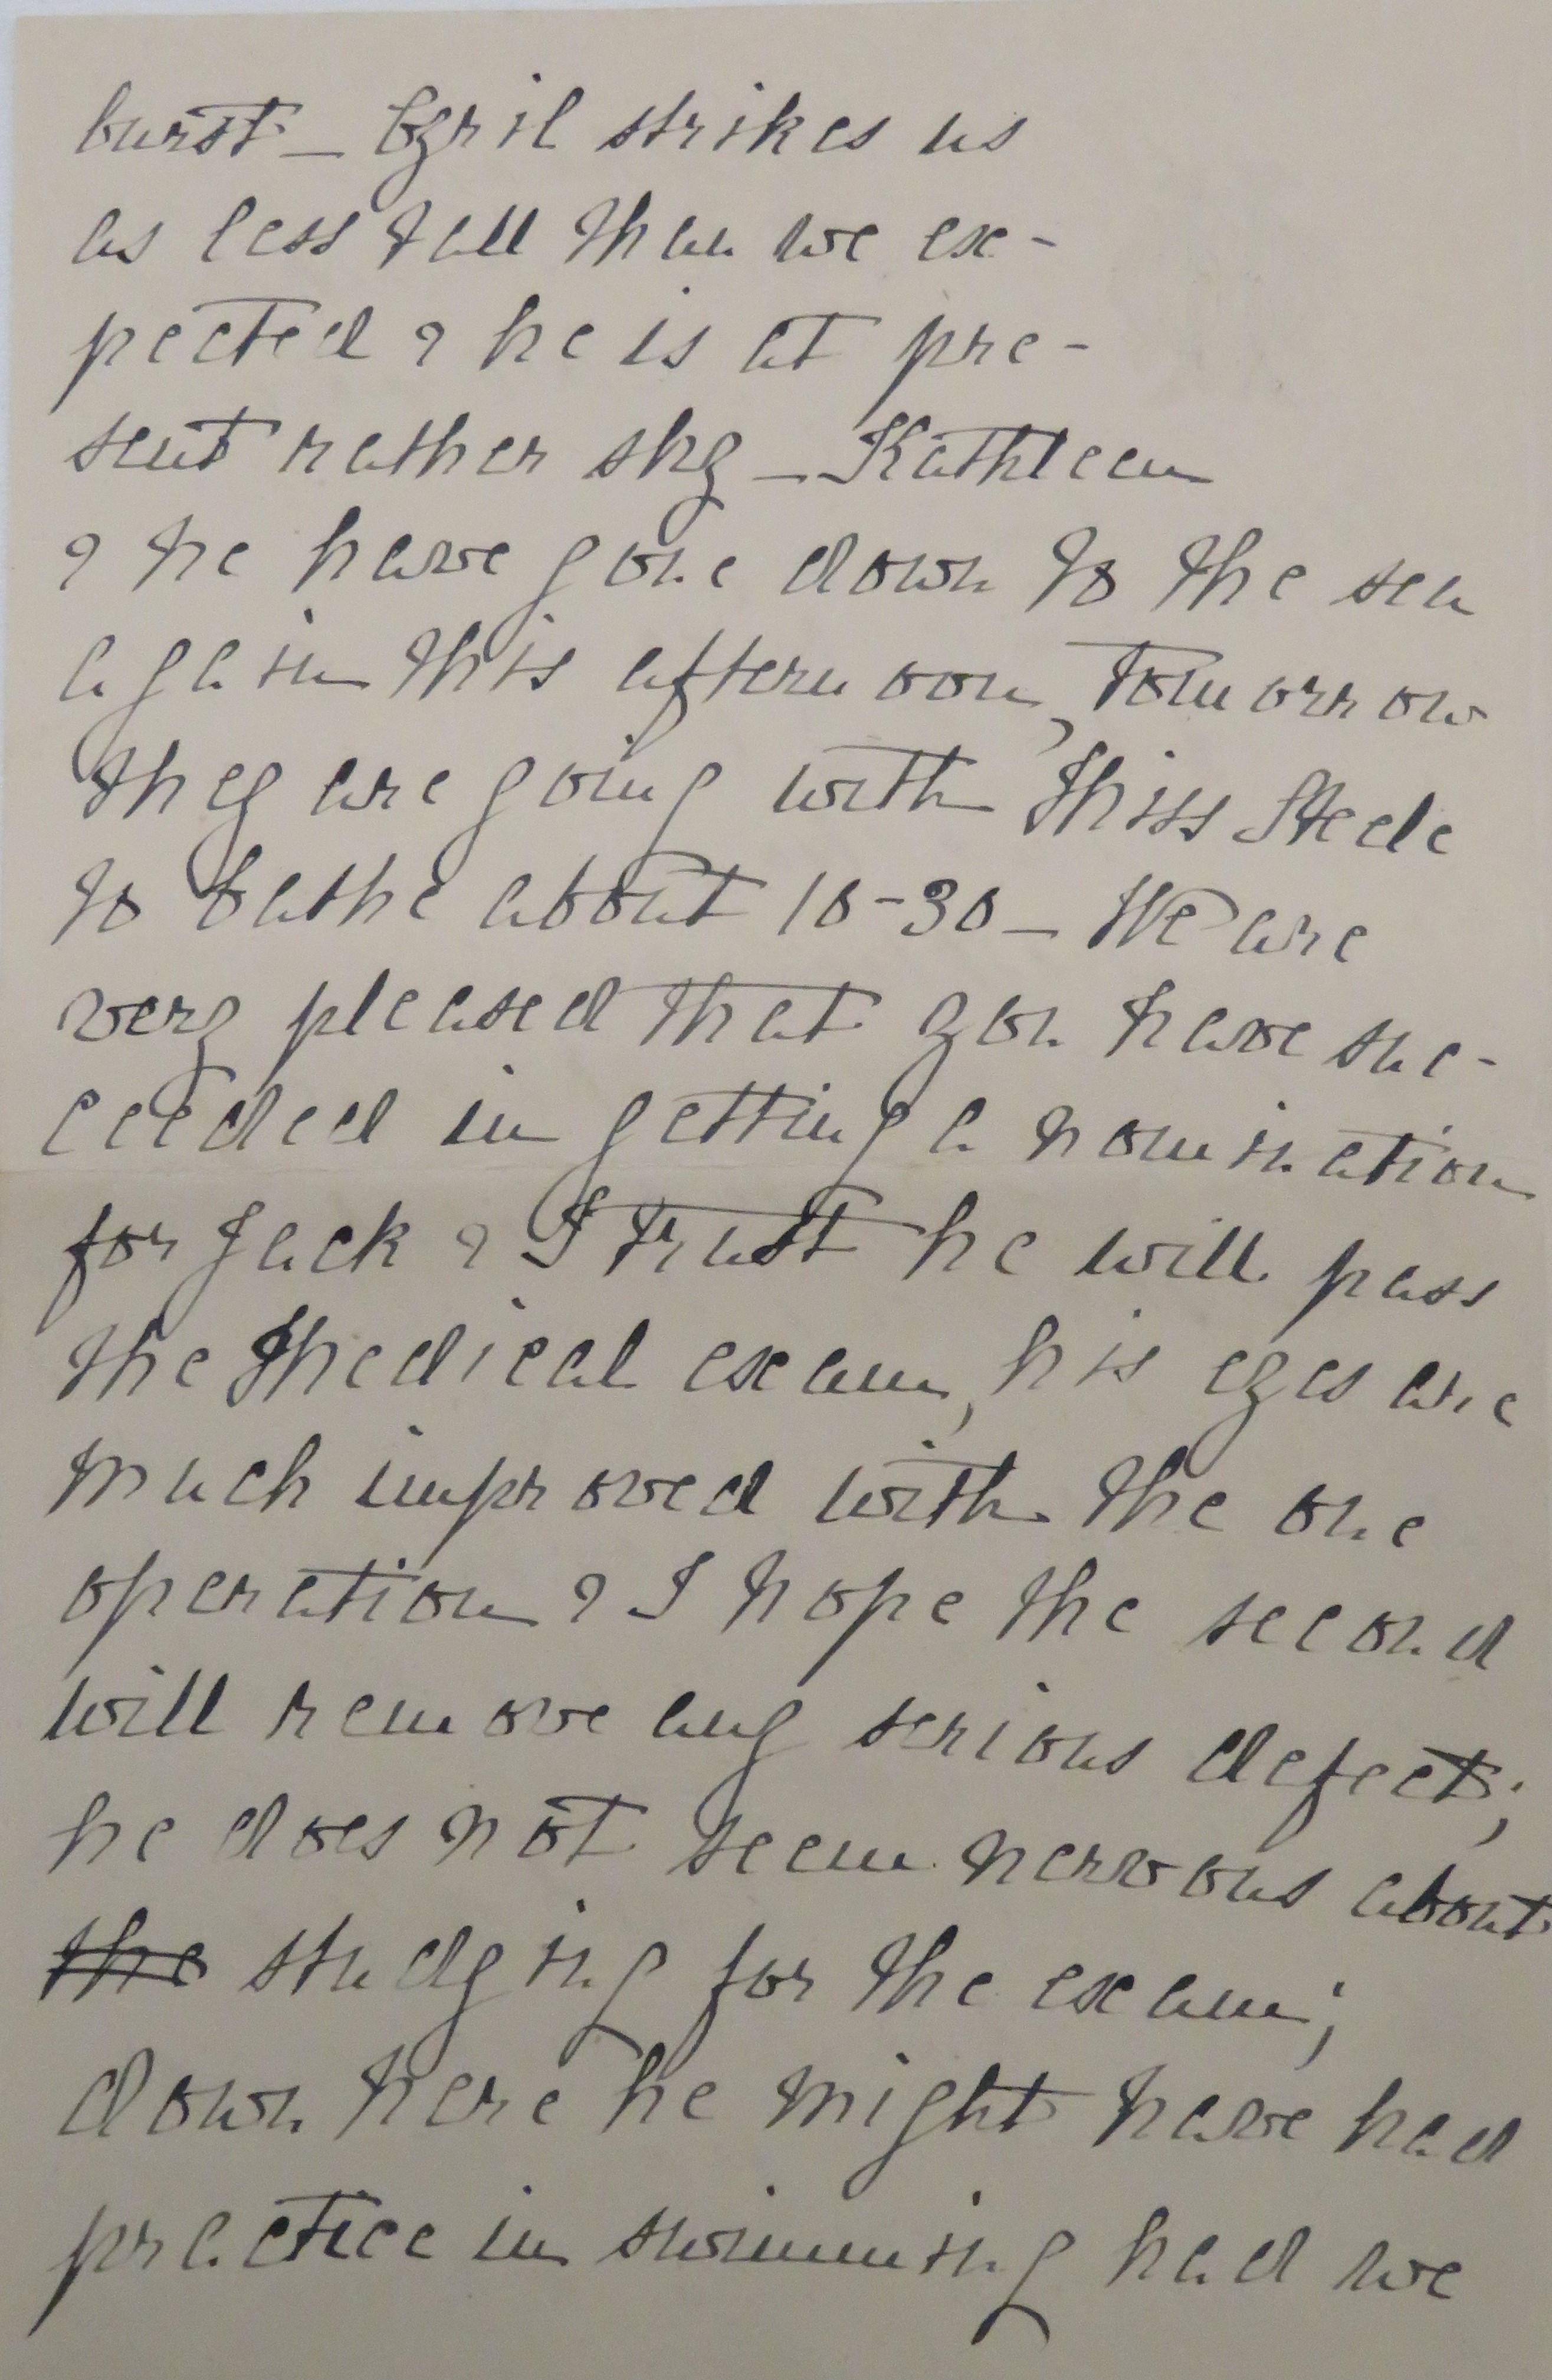 burst _ Cyril strikes us
as less tall than we ex-
pected & he is at pre-
sent rather shy _ Kathleen
& he have gone down to the sea
again this afternoon, Tomorrow
they are going with Miss Steele
to bathe about 10-30 _ We are
very pleased that you have suc-
ceeded in getting a nomination
for Jack & I trust he will pass
the Medical exam, his eyes are
much improved with the one
operation & I hope the second
will remove any serious defect;
he does not seem nervous about
the studying for the exam;
down here he might have had
practice in swimming had we